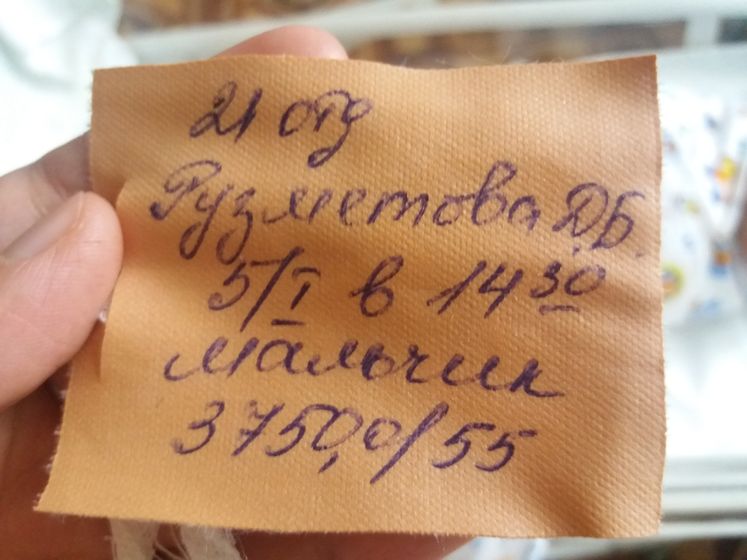 21 отд
Рузметова Д.Б.
5/I в 14 30
мальчик
3750,0/55